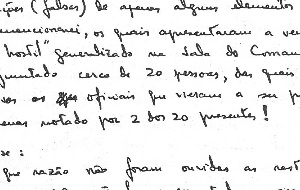 ições (falsas) de apenas alguns elementos
mencionei, os quais apresentaram a ve
hostil" generalizado na Sala do Coman
juntado cerca de 20 pessoas, das quais
os oficiais que vieram a ser p
enas notado por 2 dos 20 presentes!
se:
que razão não foram ouvidas as rest